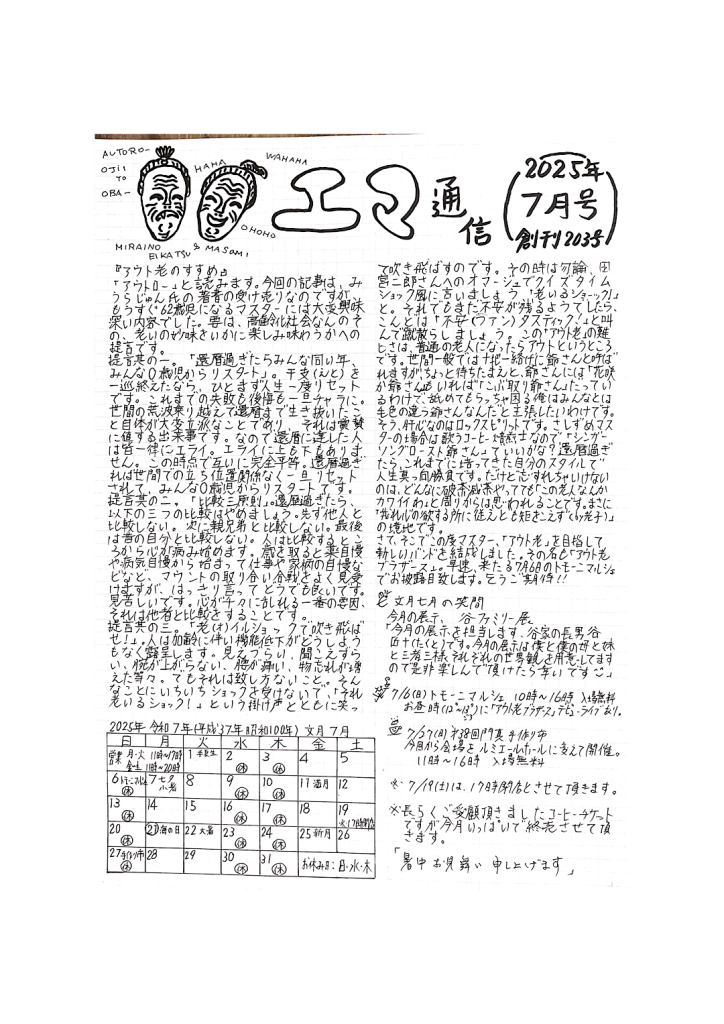 AUTORO-
OJII
TO
OBA-
HAHA
WAHAHA
OHOHO
MIRAINO
EIKATSU & MASAMI
エマ
通信
2025年
7月号
創刊203号
『アウト老のすすめ』
「アウトロー」と読みます。今回の記事は、み
うらじゅん氏の著書の受け売りなのですが、
もうすぐ62歳児になるマスターには大変興味
深い内容でした。要は、高齢化社会なんのそ
の、老いの妙味をいかに楽しみ味わうかへの
提言です。
提言其の一。「還暦過ぎたらみんな同い年、
みんな0歳児からリスタート」。干支(えと)を
一巡終えたなら、ひとまず人生一度リセット
です。これまでの失敗も後悔も一旦チャラに。
世間の荒波乗り越えて還暦まで生き抜いたこ
と自体が大変立派なことであり、それは賞賛
に値する出来事です。なので還暦に達した人
は皆一律にエライ。エライに上も下もありま
せん。この時点で互いに完全平等。還暦過ぎ
れば世間での立ち位置関係なく一旦リセット
されて、みんな0歳児からリスタートです。
提言其の二。「比較三原則」。還暦過ぎたら、
以下の三つの比較はやめましょう。先ず他人と
比較しない。次に親兄弟と比較しない。最後
は昔の自分と比較しない。人は比較するとこ
ろから心が病み始めます。歳を取ると薬自慢
や病気自慢から始まって仕事や家柄の自慢な
どなど、マウントの取り合い合戦をよく見受
けますが、はっきり言ってどうでも良いです。
見苦しいです。心が千々に乱れる一番の悪因、
それは他者と比較をすることです。
提言其の三。「老(オ)イルショックで吹き飛ば
せ!」。人は加齢に伴い機能低下がどうしよう
もなく露呈します。見えづらい、聞こえずら
い、腕が上がらない、腰が痛い、物忘れが増
えた等々。でもそれは致し方ないこと。そん
なことにいちいちショックを受けないで、「それ
老いるショック!」という掛け声とともに笑っ
て吹き飛ばすのです。その時は勿論、田
宮二郎さんへのオマージュでクイズタイム
ショック風に言いましょう、「老いるショーック!」
と。それでもまだ不安が残るようでしたら、
こんどは「不安(ファン)タスティック!」と叫
んで蹴散らしましょう。この「アウト老」の難
しさは、普通の老人になったらアウトというところ
です。世間一般では十把一絡げに爺さんと呼ば
れますが、ちょっと待ちたまえと、爺さんには「花咲
か爺さん」もいれば「こぶ取り爺さん」だってい
るわけで、舐めてもらっちゃ困る俺はみんなとは
毛色の違う爺さんなんだと主張したいわけです。
そう、肝心なのはロックスピリットです。さしずめマス
ターの場合は歌うコーヒー焙煎士なので「シンガー
ソングロースト爺さん」でいいかな？還暦過ぎ
たら、これまでに培ってきた自分のスタイルで
人生真っ向勝負です。だけど忘れちゃいけない
のは、どんなに破茶滅茶やってても「この老人なんか
カワイイわ」と周りからは思われることです。まさに
「我れ心の欲する所に従えども矩をこえず(by老子)」
の境地です。
さて、そこでこの度マスター、「アウト老」を目指して
新しいバンドを結成しました。その名も「アウト老
ブラザース」。早速、来たる7月6日のトモーニマルシェ
でお披露目致します。どうご期待!!
文月七月の笑門
今月の展示、谷ファミリー展
「今月の展示を担当します、谷家の長男谷
匠十(たくと)です。今月の展示は僕と僕の母と妹
と三者三様、それぞれの世界観を用意してます
ので是非楽しんで頂けたら幸いです」
7/6(日)トモーニマルシェ 10時〜16時 入場無料
お昼時に「アウト老ブラザース」デビューライブあり。
7/27(日)第38回門真手作り市
今月から会場をルミエールホールに変えて開催。
11時〜16時 入場無料
※・7/19(土)は、17時閉店とさせて頂きます。
※長らくご愛顧頂きましたコーヒーチケット
ですが今月いっぱいで終売させて頂
きます。
「暑中お見舞い申し上げます」
2025年 令和7年(平成37年昭和100年) 文月 7月
日 月 火 水 木 金 土
営業 月・火 11時〜17時 金土 11時〜20時 1 半夏生 2 休 3 休 4 5
6 トモニマルシェ 休 7 七夕 小暑 8 9 休 10 休 11 満月 12
13 休 14 15 16 休 17 休 18 19 ※17時閉店
20 休 21 海の日 22 大暑 23 休 24 休 25 新月 26
27 手作り市 休 28 29 30 休 31 休 お休み日:日・水・木